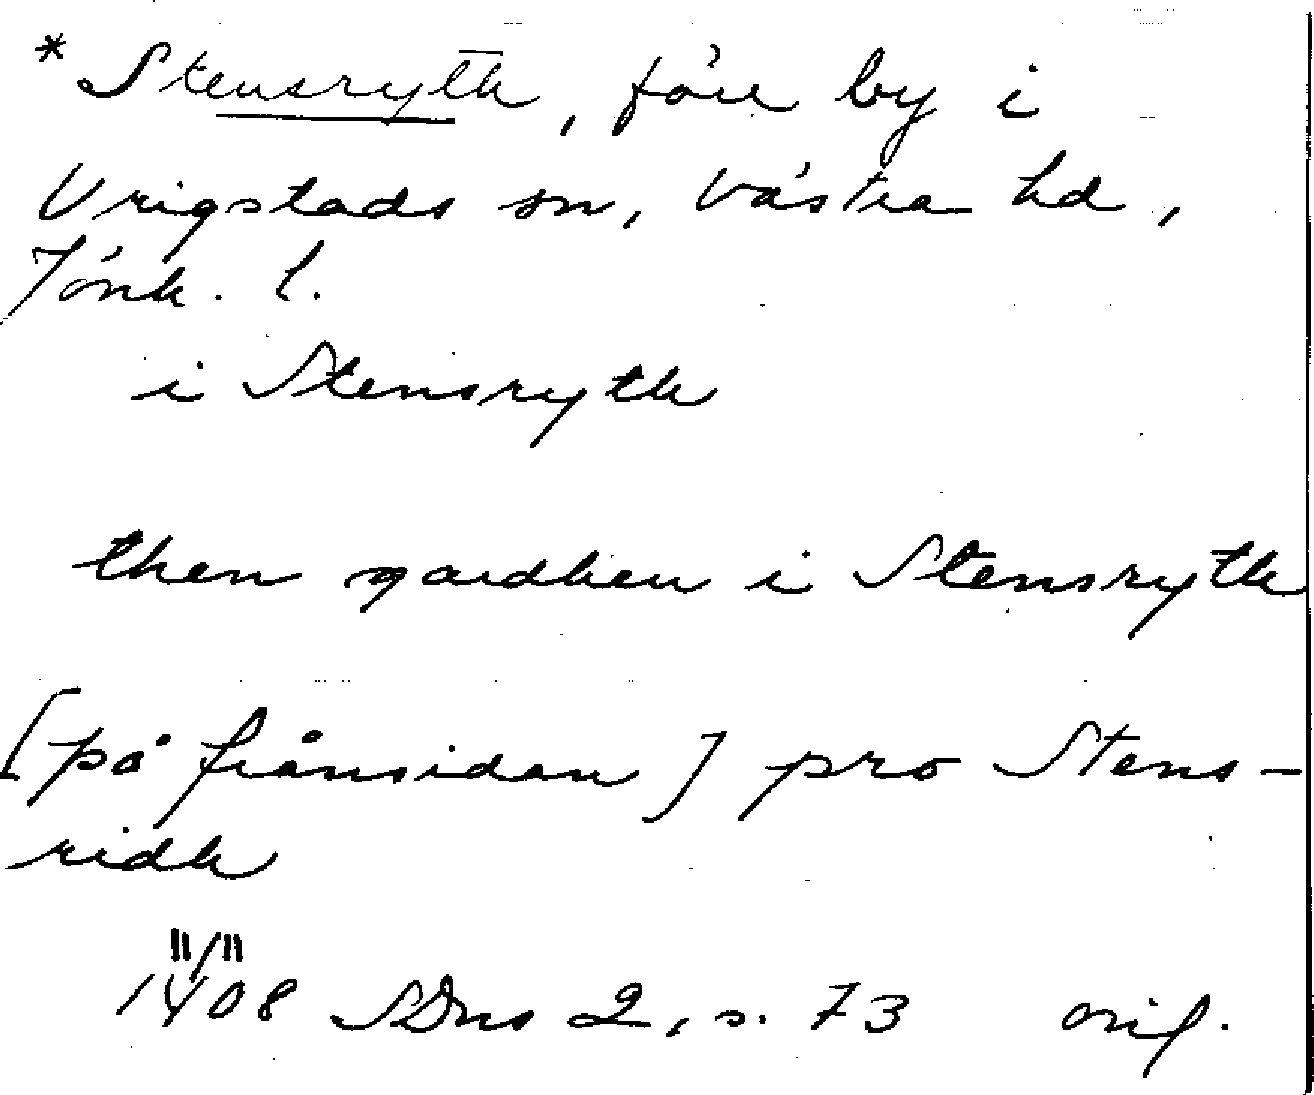 * Stensryth, förr by i
Vrigstads sn, Västra hd,
Jönk. l.
i Stensryth
then gardhen i Stensryth
[på frånsidan] pro Stens-
ridh
11/11
1408 SDns 2, s. 73 orig.